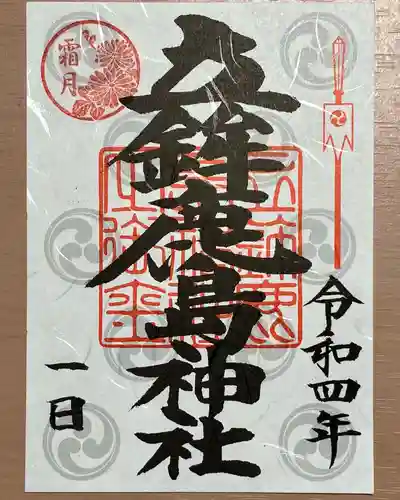 令和四年
立鉾鹿島神社
霜月
一日